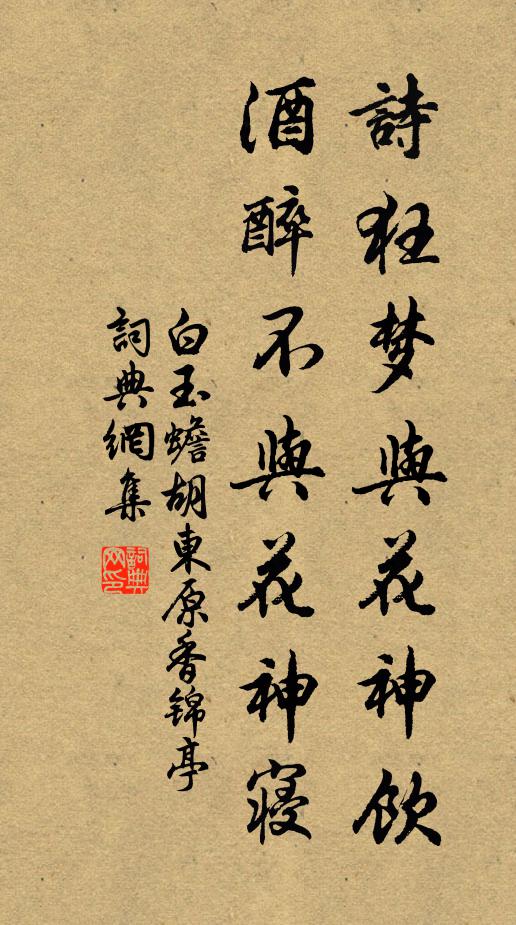 詩狂梦與花神飲
酒醉不與花神寝
白玉蟾胡東原香锦亭
詞典網集
詞典网印